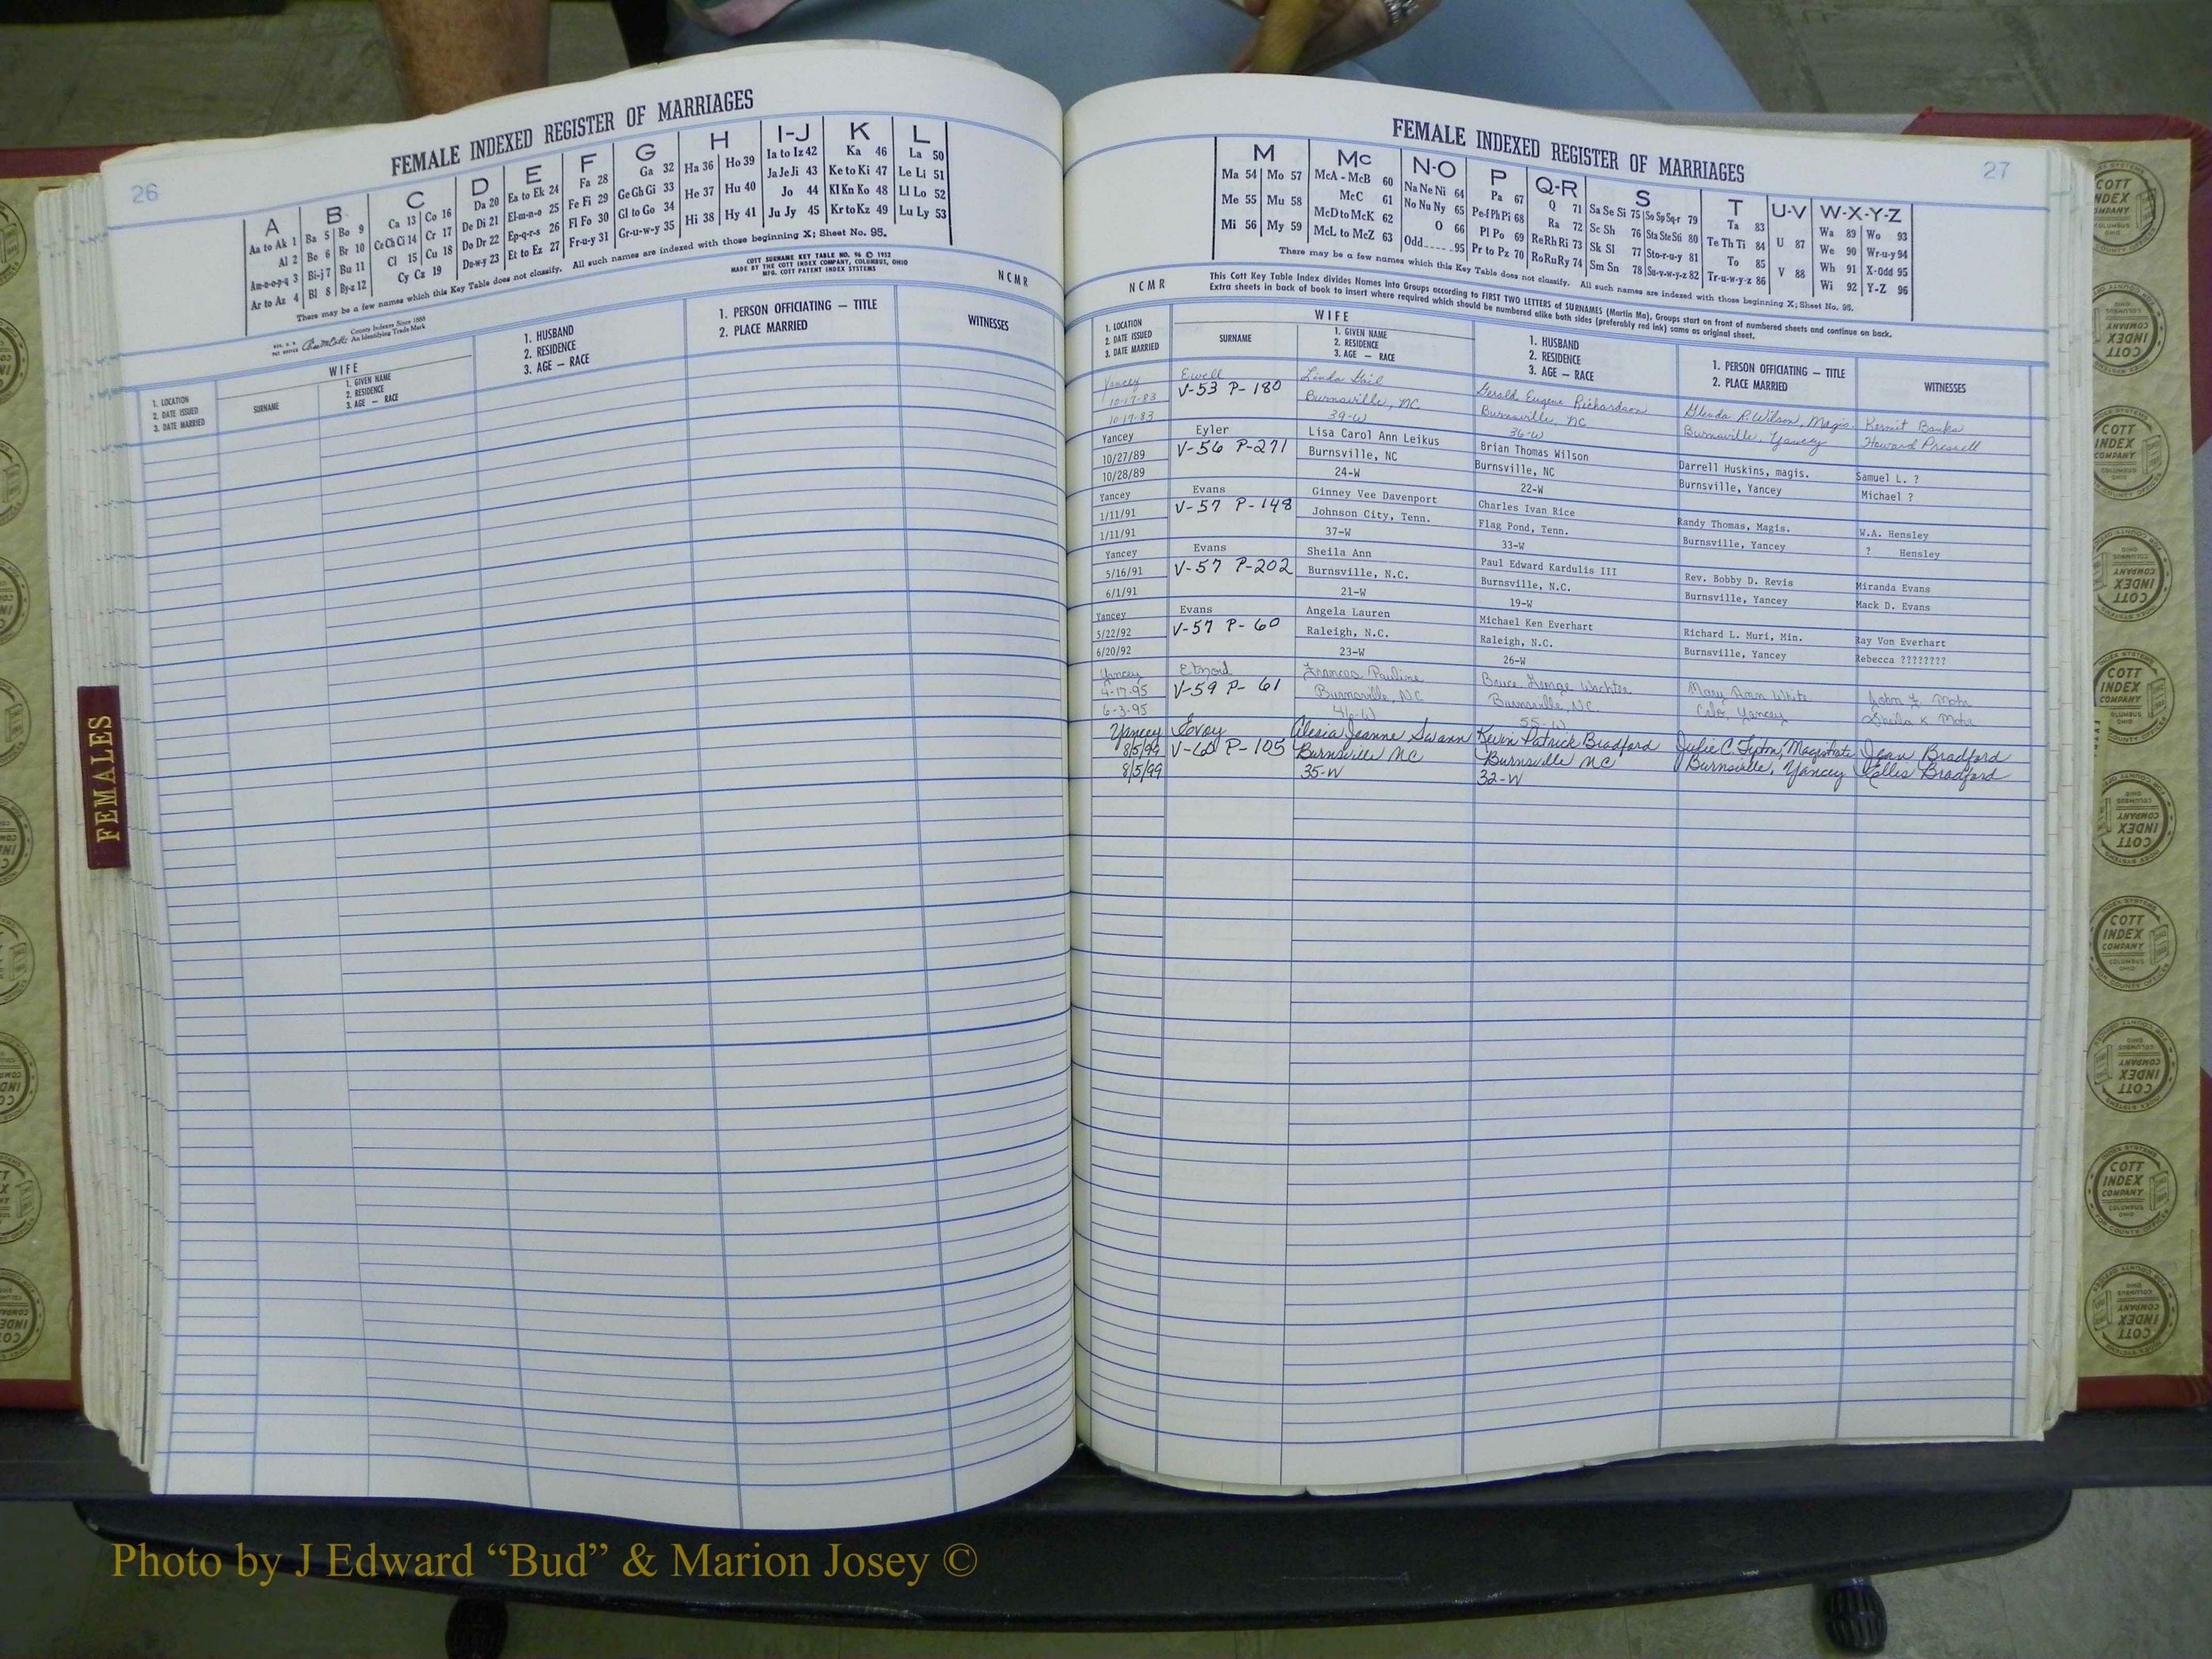 FEMALE INDEXED REGISTER OF MARRIAGES
26
A B C D E F G H I-J K L
Aa to Ak 1 Ba 5 Bo 9 Ca 13 Co 16 Da 20 Ea to Ek 24 Fa 28 Ga 32 Ha 36 Ho 39 Ia to Iz 42 Ka 46 La 50
Al 2 Be 6 Br 10 Ce Ch Ci 14 Cr 17 De Di 21 El-m-n-o 25 Fe Fi 29 Ge Gh Gi 33 He 37 Hu 40 Ja Je Ji 43 Ke to Ki 47 Le Li 51
Am-n-o-p-q 3 Bi-j 7 Bu 11 Cl 15 Cu 18 Do Dr 22 Ep-q-r-s 26 Fl Fo 30 Gl to Go 34 Hi 38 Hy 41 Jo 44 Kl Kn Ko 48 Ll Lo 52
Ar to Az 4 Bl 8 By-z 12 Cy Cz 19 Du-w-y 23 Et to Ez 27 Fr-u-y 31 Gr-u-w-y 35 Ju Jy 45 Kr to Kz 49 Lu Ly 53
There may be a few names which this Key Table does not classify. All such names are indexed with those beginning X; Sheet No. 95.
County Indexes Since 1888
An Identifying Trade Mark
COTT SURNAME KEY TABLE NO. 96 © 1952
MADE BY THE COTT INDEX COMPANY, COLUMBUS, OHIO
MFG. COTT PATENT INDEX SYSTEMS
NCMR
1. LOCATION
2. DATE ISSUED
3. DATE MARRIED
WIFE
SURNAME
1. GIVEN NAME
2. RESIDENCE
3. AGE — RACE
1. HUSBAND
2. RESIDENCE
3. AGE — RACE
1. PERSON OFFICIATING — TITLE
2. PLACE MARRIED
WITNESSES
FEMALES
FEMALE INDEXED REGISTER OF MARRIAGES
27
M Mc N-O P Q-R S T U-V W-X-Y-Z
Ma 54 Mo 57 McA - McB 60 Na Ne Ni 64 Pa 67 Q 71 Sa Se Si 75 So Sp Sq-r 79 Ta 83 U 87 Wa 89 Wo 93
Me 55 Mu 58 McC 61 No Nu Ny 65 Pe-f Ph Pi 68 Ra 72 Sc Sh 76 Sta Ste Sti 80 Te Th Ti 84 V 88 We 90 Wr-u-y 94
Mi 56 My 59 McD to McK 62 O 66 Pl Po 69 Re Rh Ri 73 Sk Sl 77 Sto-r-u-y 81 To 85 Wh 91 X-Odd 95
McL to McZ 63 Odd 95 Pr to Pz 70 Ro Ru Ry 74 Sm Sn 78 Su-v-w-y-z 82 Tr-u-w-y-z 86 Wi 92 Y-Z 96
There may be a few names which this Key Table does not classify. All such names are indexed with those beginning X; Sheet No. 95.
This Cott Key Table Index divides Names into Groups according to FIRST TWO LETTERS of SURNAMES (Martin Ma). Groups start on front of numbered sheets and continue on back.
Extra sheets in back of book to insert where required which should be numbered alike both sides (preferably red ink) same as original sheet.
NCMR
1. LOCATION
2. DATE ISSUED
3. DATE MARRIED
WIFE
SURNAME
1. GIVEN NAME
2. RESIDENCE
3. AGE — RACE
1. HUSBAND
2. RESIDENCE
3. AGE — RACE
1. PERSON OFFICIATING — TITLE
2. PLACE MARRIED
WITNESSES
Yancey Ewell Linda Gail Gerald Eugene Richardson Glenda R. Wilson, Magis. Kermit Banks
10-17-83 V-53 P-180 Burnsville, NC Burnsville, NC Burnsville, Yancey Howard Pressell
10-17-83 39-W 36-W
Yancey Eyler Lisa Carol Ann Leikus Brian Thomas Wilson Darrell Huskins, magis. Samuel L. ?
10/27/89 V-56 P-271 Burnsville, NC Burnsville, NC Burnsville, Yancey Michael ?
10/28/89 24-W 22-W
Yancey Evans Ginney Vee Davenport Charles Ivan Rice Randy Thomas, Magis. W.A. Hensley
1/11/91 V-57 P-148 Johnson City, Tenn. Flag Pond, Tenn. Burnsville, Yancey ? Hensley
1/11/91 37-W 33-W
Yancey Evans Sheila Ann Paul Edward Kardulis III Rev. Bobby D. Revis Miranda Evans
5/16/91 V-57 P-202 Burnsville, N.C. Burnsville, N.C. Burnsville, Yancey Mack D. Evans
6/1/91 21-W 19-W
Yancey Evans Angela Lauren Michael Ken Everhart Richard L. Muri, Min. Ray Von Everhart
5/22/92 V-57 P-60 Raleigh, N.C. Raleigh, N.C. Burnsville, Yancey Rebecca ????????
6/20/92 23-W 26-W
Yancey Etzoid Frances Pauline Bruce George Wachter Mary Ann White John F. Mohr
4-17-95 V-59 P-61 Burnsville, NC Burnsville, NC. Celo, Yancey Sheila K Mohr
6-3-95 46-W 55-W
Yancey Evoy Alesia Jeanne Swann Kevin Patrick Bradford Julie C. Tipton, Magistrate Jean Bradford
8/5/99 V-60 P-105 Burnsville NC Burnsville NC Burnsville, Yancey Ellis Bradford
8/5/99 35-W 32-W
COTT INDEX COMPANY
COLUMBUS OHIO
Photo by J Edward “Bud” & Marion Josey ©